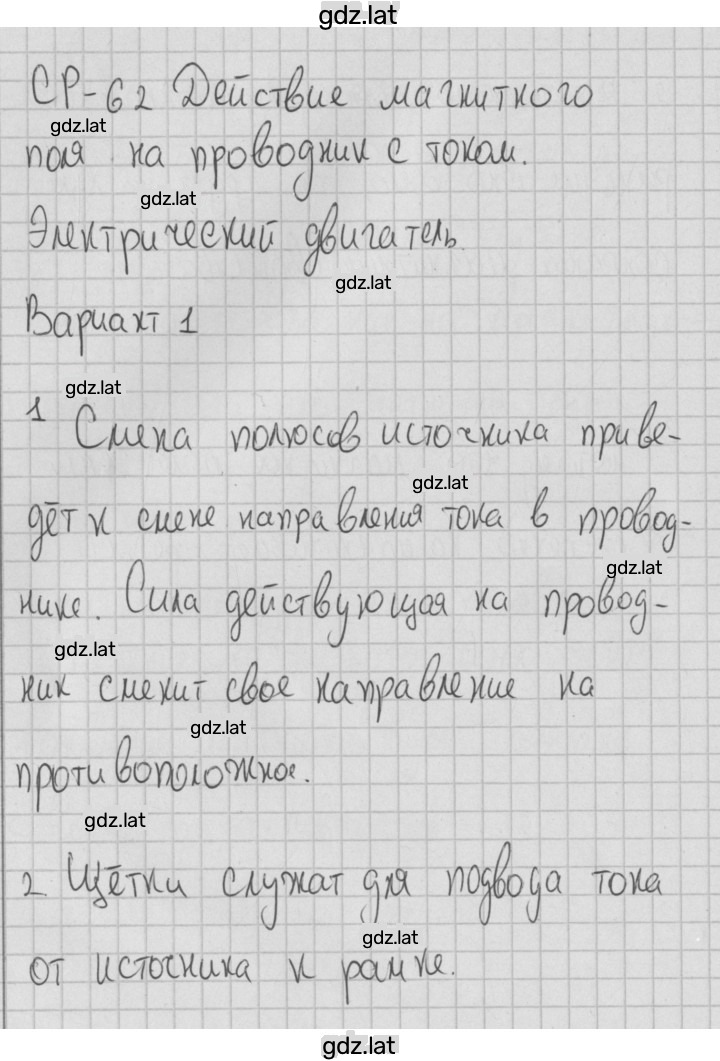 gdz.lat
СР-62 Действие магнитного
gdz.lat
поля на проводник с током.
gdz.lat
Электрический двигатель.
gdz.lat
Вариант 1
gdz.lat
1 Смена полюсов источника приве-
gdz.lat
дёт к смене направления тока в провод-
gdz.lat
нике. Сила действующая на провод-
gdz.lat
ник сменит свое направление на
gdz.lat
противоположное.
gdz.lat
2 Щётки служат для подвода тока
gdz.lat
от источника к рамке.
gdz.lat